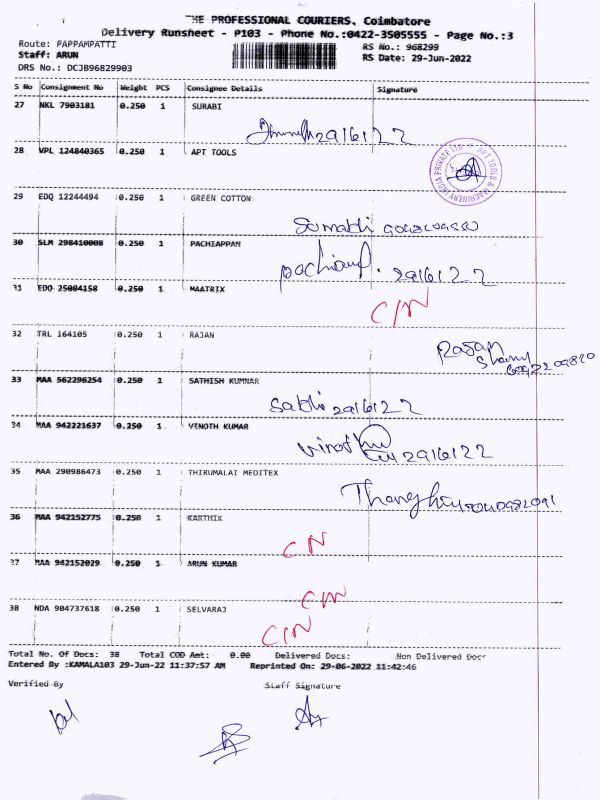 THE PROFESSIONAL COURIERS, Coimbatore
Delivery Runsheet - P103 - Phone No.:0422-3505555 - Page No.:3
Route: PAPPAMPATTI
RS No.: 968299
Staff: ARUN
RS Date: 29-Jun-2022
DRS No.: DCJB96829903
S No Consignment No Weight PCS Consignee Details Signature
27 NKL 7903181 0.250 1 SURABI
29/6/22
28 VPL 124840365 0.250 1 APT TOOLS
29 EDQ 12244494 0.250 1 GREEN COTTON
Sumathi
30 SLM 298410008 0.250 1 PACHIAPPAN
29/6/22
31 EDQ 25084158 0.250 1 MAATRIX
C/N
32 TRL 164105 0.250 1 RAJAN
33 MAA 562296254 0.250 1 SATHISH KUMNAR
29/6/22
34 MAA 942221637 0.250 1 VINOTH KUMAR
29/6/22
35 MAA 290986473 0.250 1 THIRUMALAI MEDITEX
36 MAA 942152775 0.250 1 KARTHIK
C/N
37 MAA 942152029 0.250 1 ARUN KUMAR
C/N
38 NDA 904737618 0.250 1 SELVARAJ
C/N
Total No. Of Docs: 38 Total COD Amt: 0.00 Delivered Docs: Non Delivered Docs
Entered By :KAMALA103 29-Jun-22 11:37:57 AM Reprinted On: 29-06-2022 11:42:46
Verified By Staff Signature